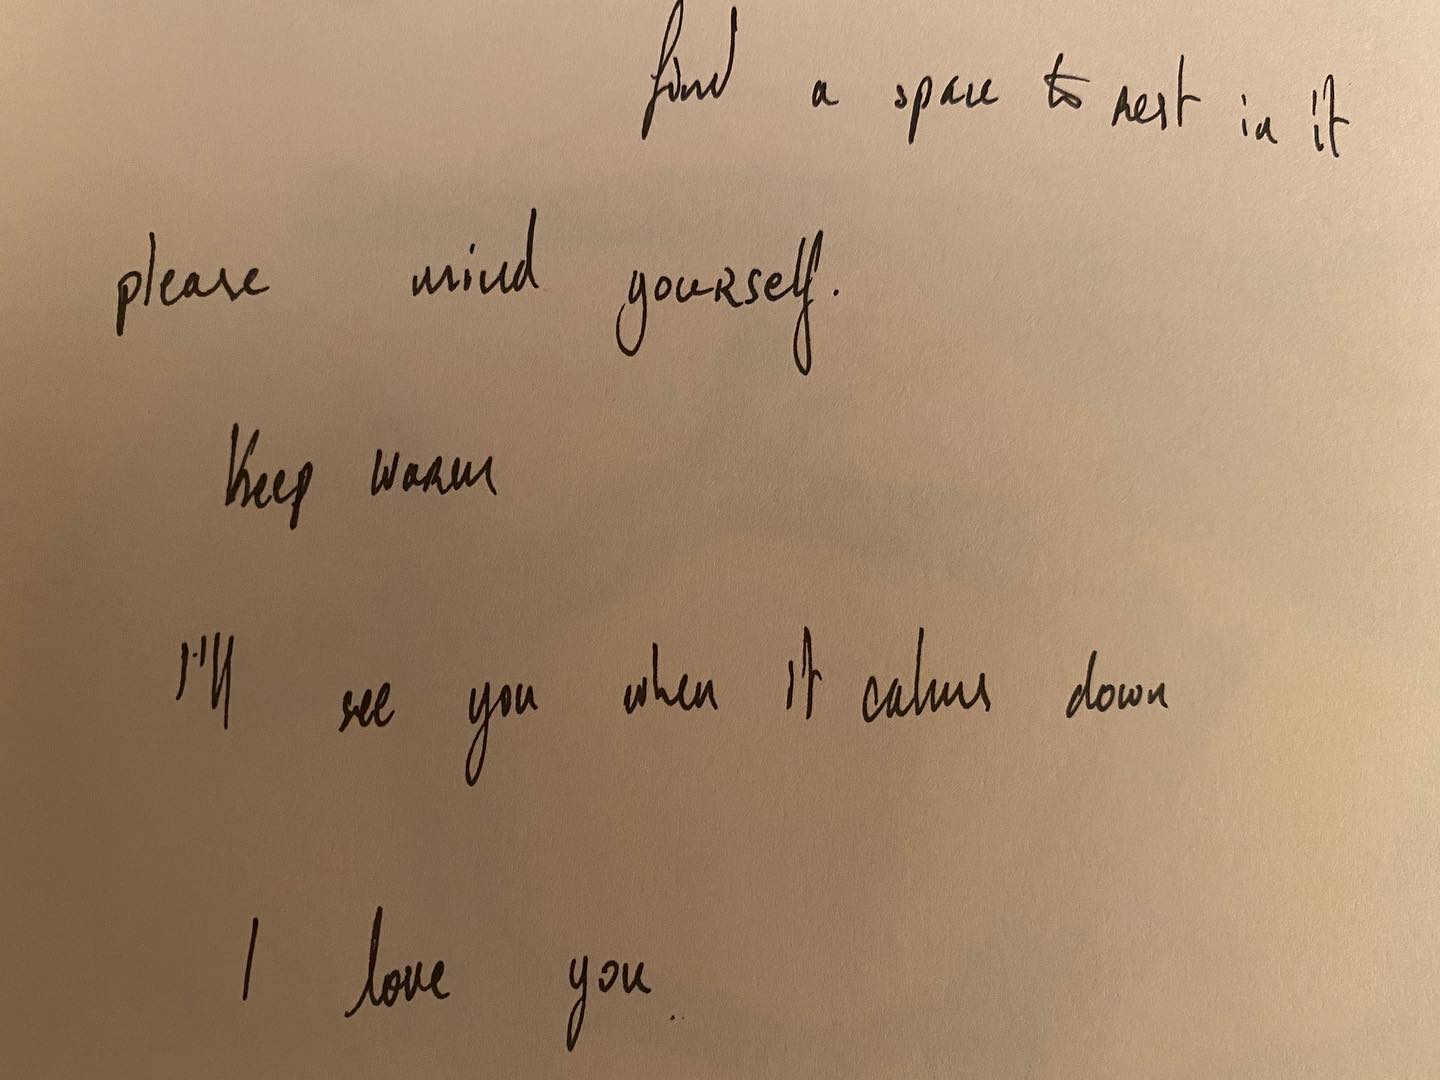 find a space to rest in it
please mind yourself.
Keep warm
I'll see you when it calms down
I love you..